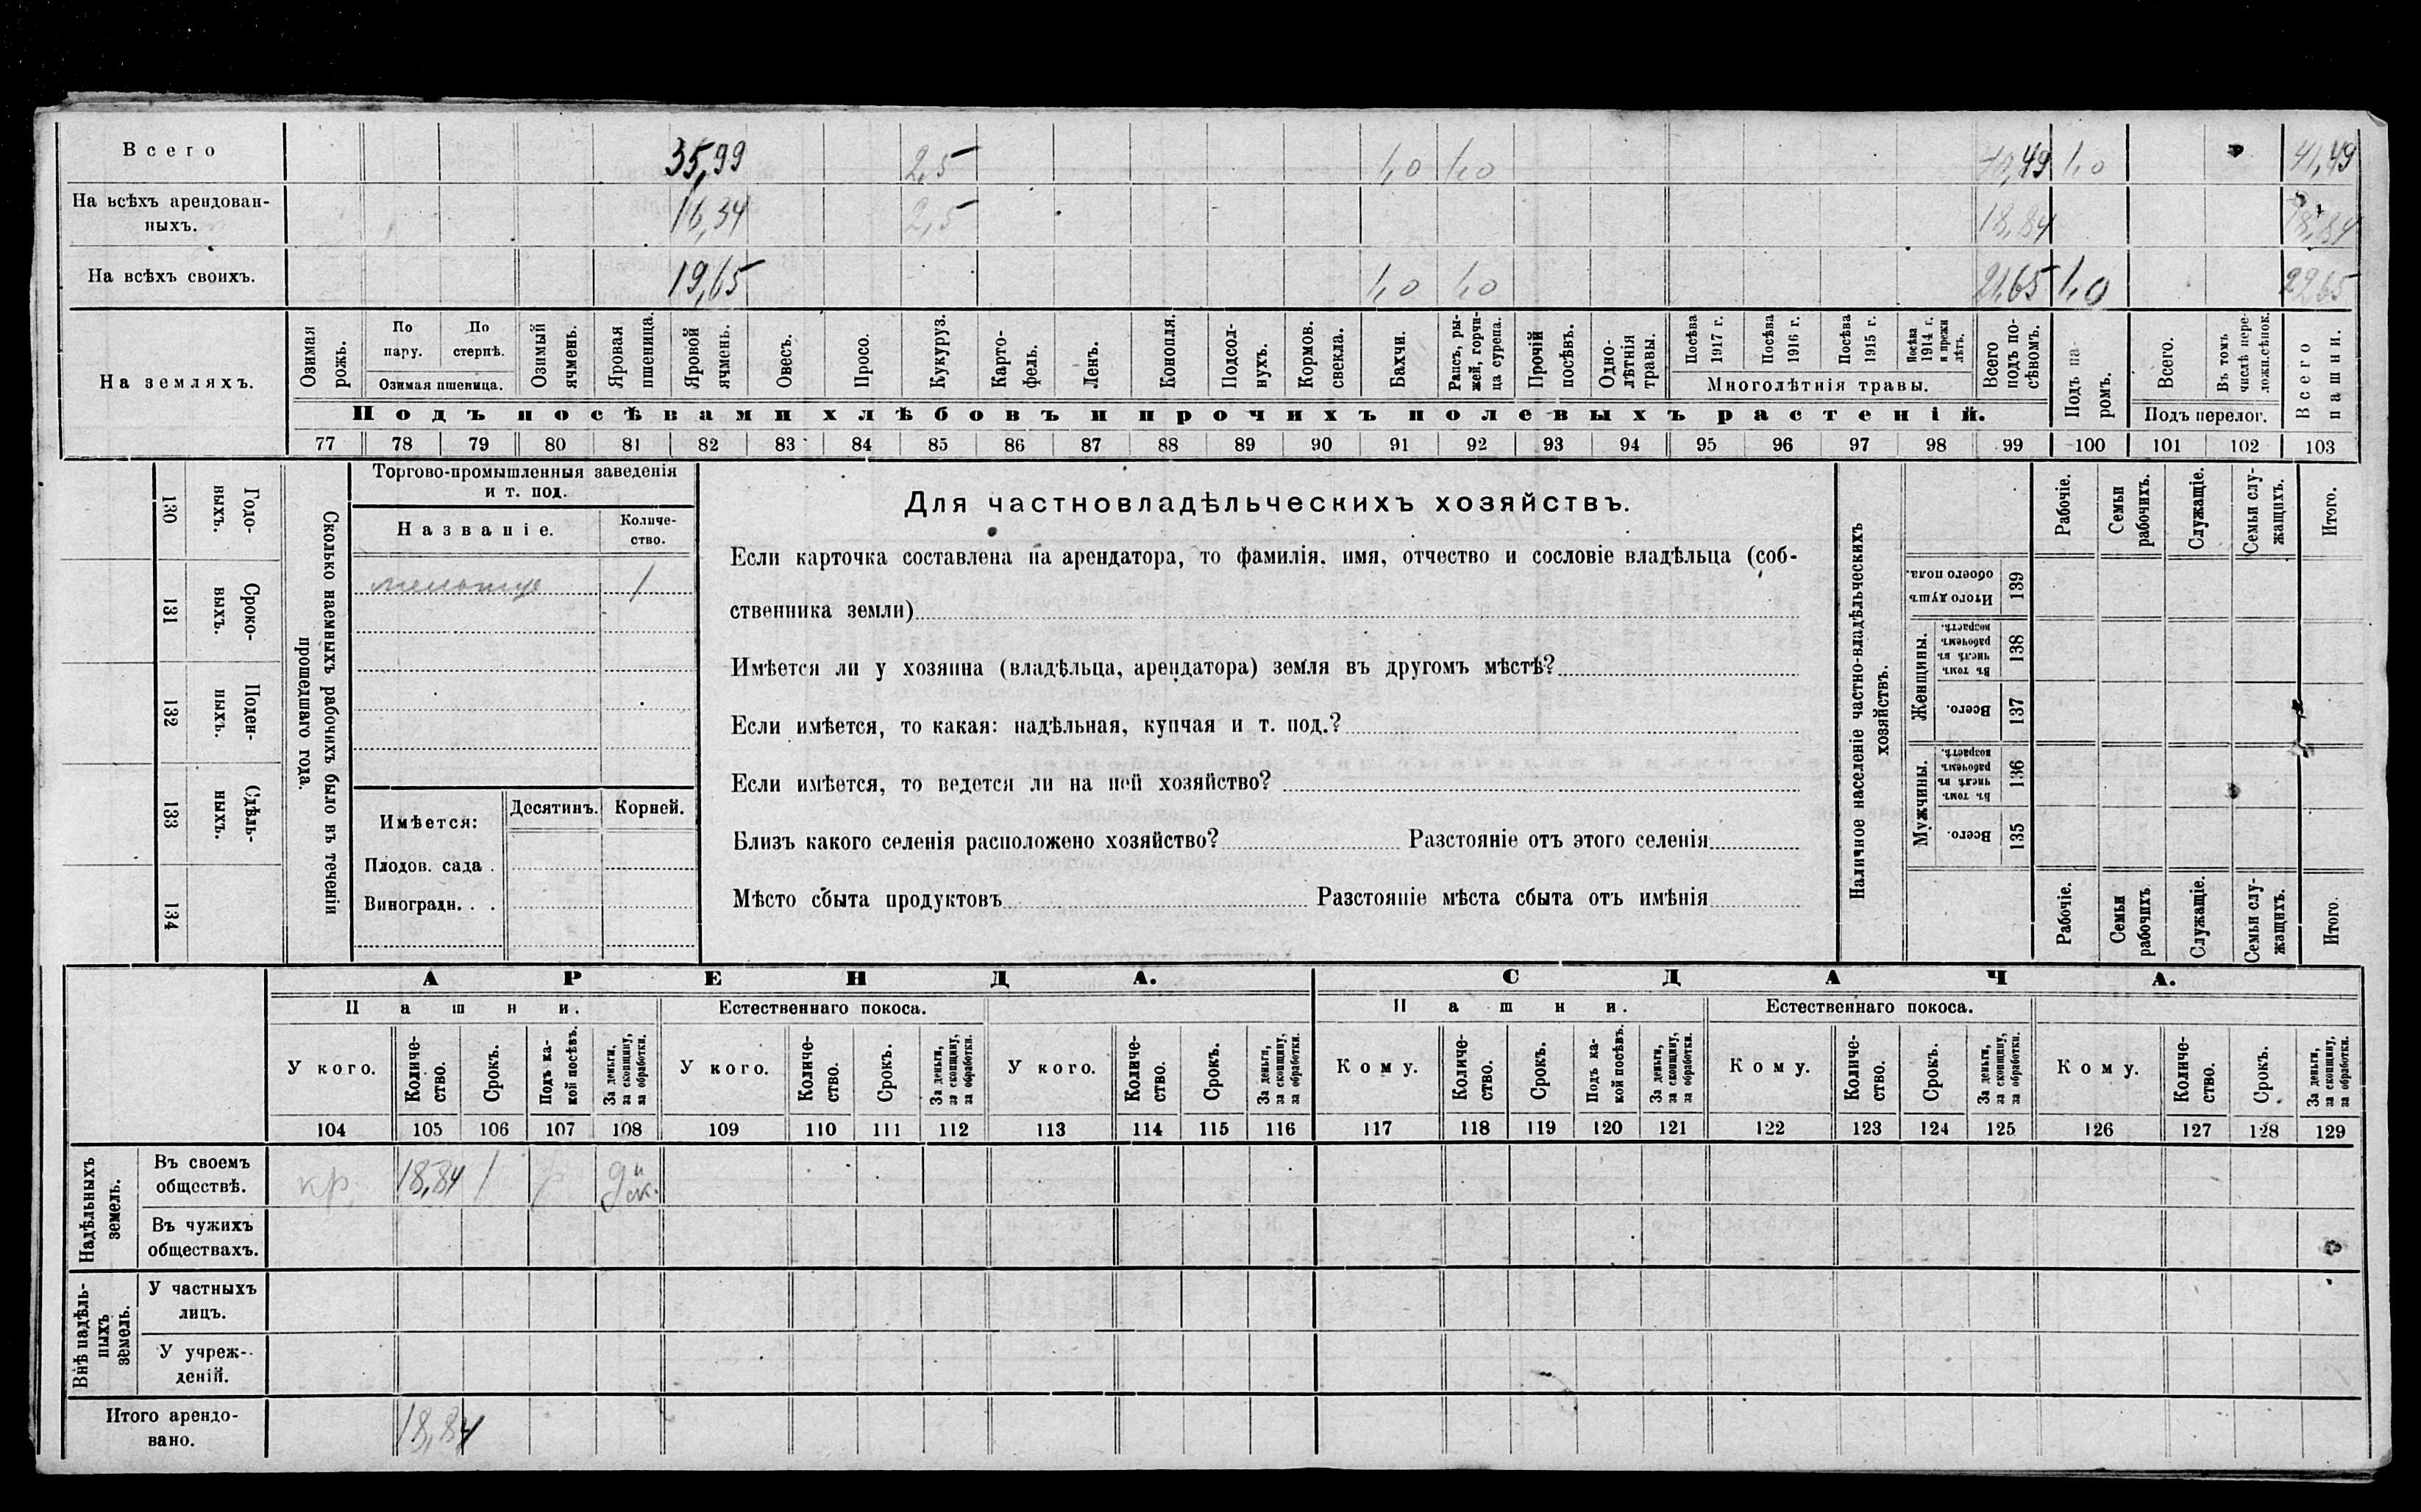 Всего 35,99 2,5 1,0 1,0 40,49 1,0 41,49
На всѣхъ арендован-
ныхъ. 16,34 2,5 18,84 18,84
На всѣхъ своихъ. 19,65 1,0 1,0 21,65 1,0 22,65
На земляхъ.
Озимая рожь.
По пару.
По стернѣ.
Озимая пшеница.
Озимый ячмень.
Яровая пшеница.
Яровой ячмень.
Овесъ.
Просо.
Кукуруз.
Карто-
фель.
Ленъ.
Конопля.
Подсол-
нухъ.
Кормов. свекла.
Бахчи.
Рапсъ, ры-
жей, горчи-
ца сурепа.
Прочій посѣвъ.
Одно-
лѣтнія травы.
Посѣва 1917 г.
Посѣва 1916 г.
Посѣва 1915 г.
Посѣва 1914 г. и прежн лѣтъ.
Многолѣтнія травы.
Всего подъ по-
сѣвомъ.
Подъ па-
ромъ.
Всего.
Въ томъ числѣ пере-
ложн.сѣнок.
Подъ перелог.
Всего пашни.
Подъ посѣвами хлѣбовъ и прочихъ полевыхъ растеній.
77 78 79 80 81 82 83 84 85 86 87 88 89 90 91 92 93 94 95 96 97 98 99 100 101 102 103
130 Годо-
выхъ.
131 Сроко-
выхъ.
132 Поден-
ныхъ.
133 Сдѣль-
ныхъ.
134
Сколько наемныхъ рабочихъ было въ теченіи
прошедшаго года.
Торгово-промышленныя заведенія
и т. под.
Названіе. Количе-
ство.
1
Имѣется: Десятинъ. Корней.
Плодов. сада .
Виноградн. . .
Для частновладѣльческихъ хозяйствъ.
Если карточка составлена на арендатора, то фамилія, имя, отчество и сословіе владѣльца (соб-
ственника земли)
Имѣется ли у хозяина (владѣльца, арендатора) земля въ другомъ мѣстѣ?
Если имѣется, то какая: надѣльная, купчая и т. под.?
Если имѣется, то ведется ли на ней хозяйство?
Близъ какого селенія расположено хозяйство? Разстояніе отъ этого селенія
Мѣсто сбыта продуктовъ Разстояніе мѣста сбыта отъ имѣнія
Наличное населеніе частно-владѣльческихъ
хозяйствъ.
Рабочіе.
Семьи рабочихъ.
Служащіе.
Семьи слу-
жащихъ.
Итого.
Итого душъ обоего пола. 139
Женщины.
Въ томъ числѣ въ рабочемъ возрастѣ. 138
Всего. 137
Мужчины.
Въ томъ числѣ въ рабочемъ возрастѣ. 136
Всего. 135
Рабочіе.
Семьи рабочихъ
Служащіе.
Семьи слу-
жащихъ.
Итого.
АРЕНДА. СДАЧА.
Пашни. Естественнаго покоса. Пашни. Естественнаго покоса.
У кого.
Количе-
ство.
Срокъ.
Подъ ка-
кой посѣвъ.
За деньги, за скопщину, за обработки.
У кого.
Количе-
ство.
Срокъ.
За деньги, за скопщину, за обработки.
У кого.
Количе-
ство.
Срокъ.
За деньги, за скопщину, за обработки.
Кому.
Количе-
ство.
Срокъ.
Подъ ка-
кой посѣвъ.
За деньги, за скопщину, за обработки.
Кому.
Количе-
ство.
Срокъ.
За деньги, за скопщину, за обработки.
Кому.
Количе-
ство.
Срокъ.
За деньги, за скопщину, за обработки.
104 105 106 107 108 109 110 111 112 113 114 115 116 117 118 119 120 121 122 123 124 125 126 127 128 129
Надѣльныхъ земель.
Въ своемъ
обществѣ. кр. 18,84 1
Въ чужихъ
обществахъ.
Внѣ надѣль-
ныхъ земель.
У частныхъ
лицъ.
У учреж-
деній.
Итого арендо-
вано. 18,84